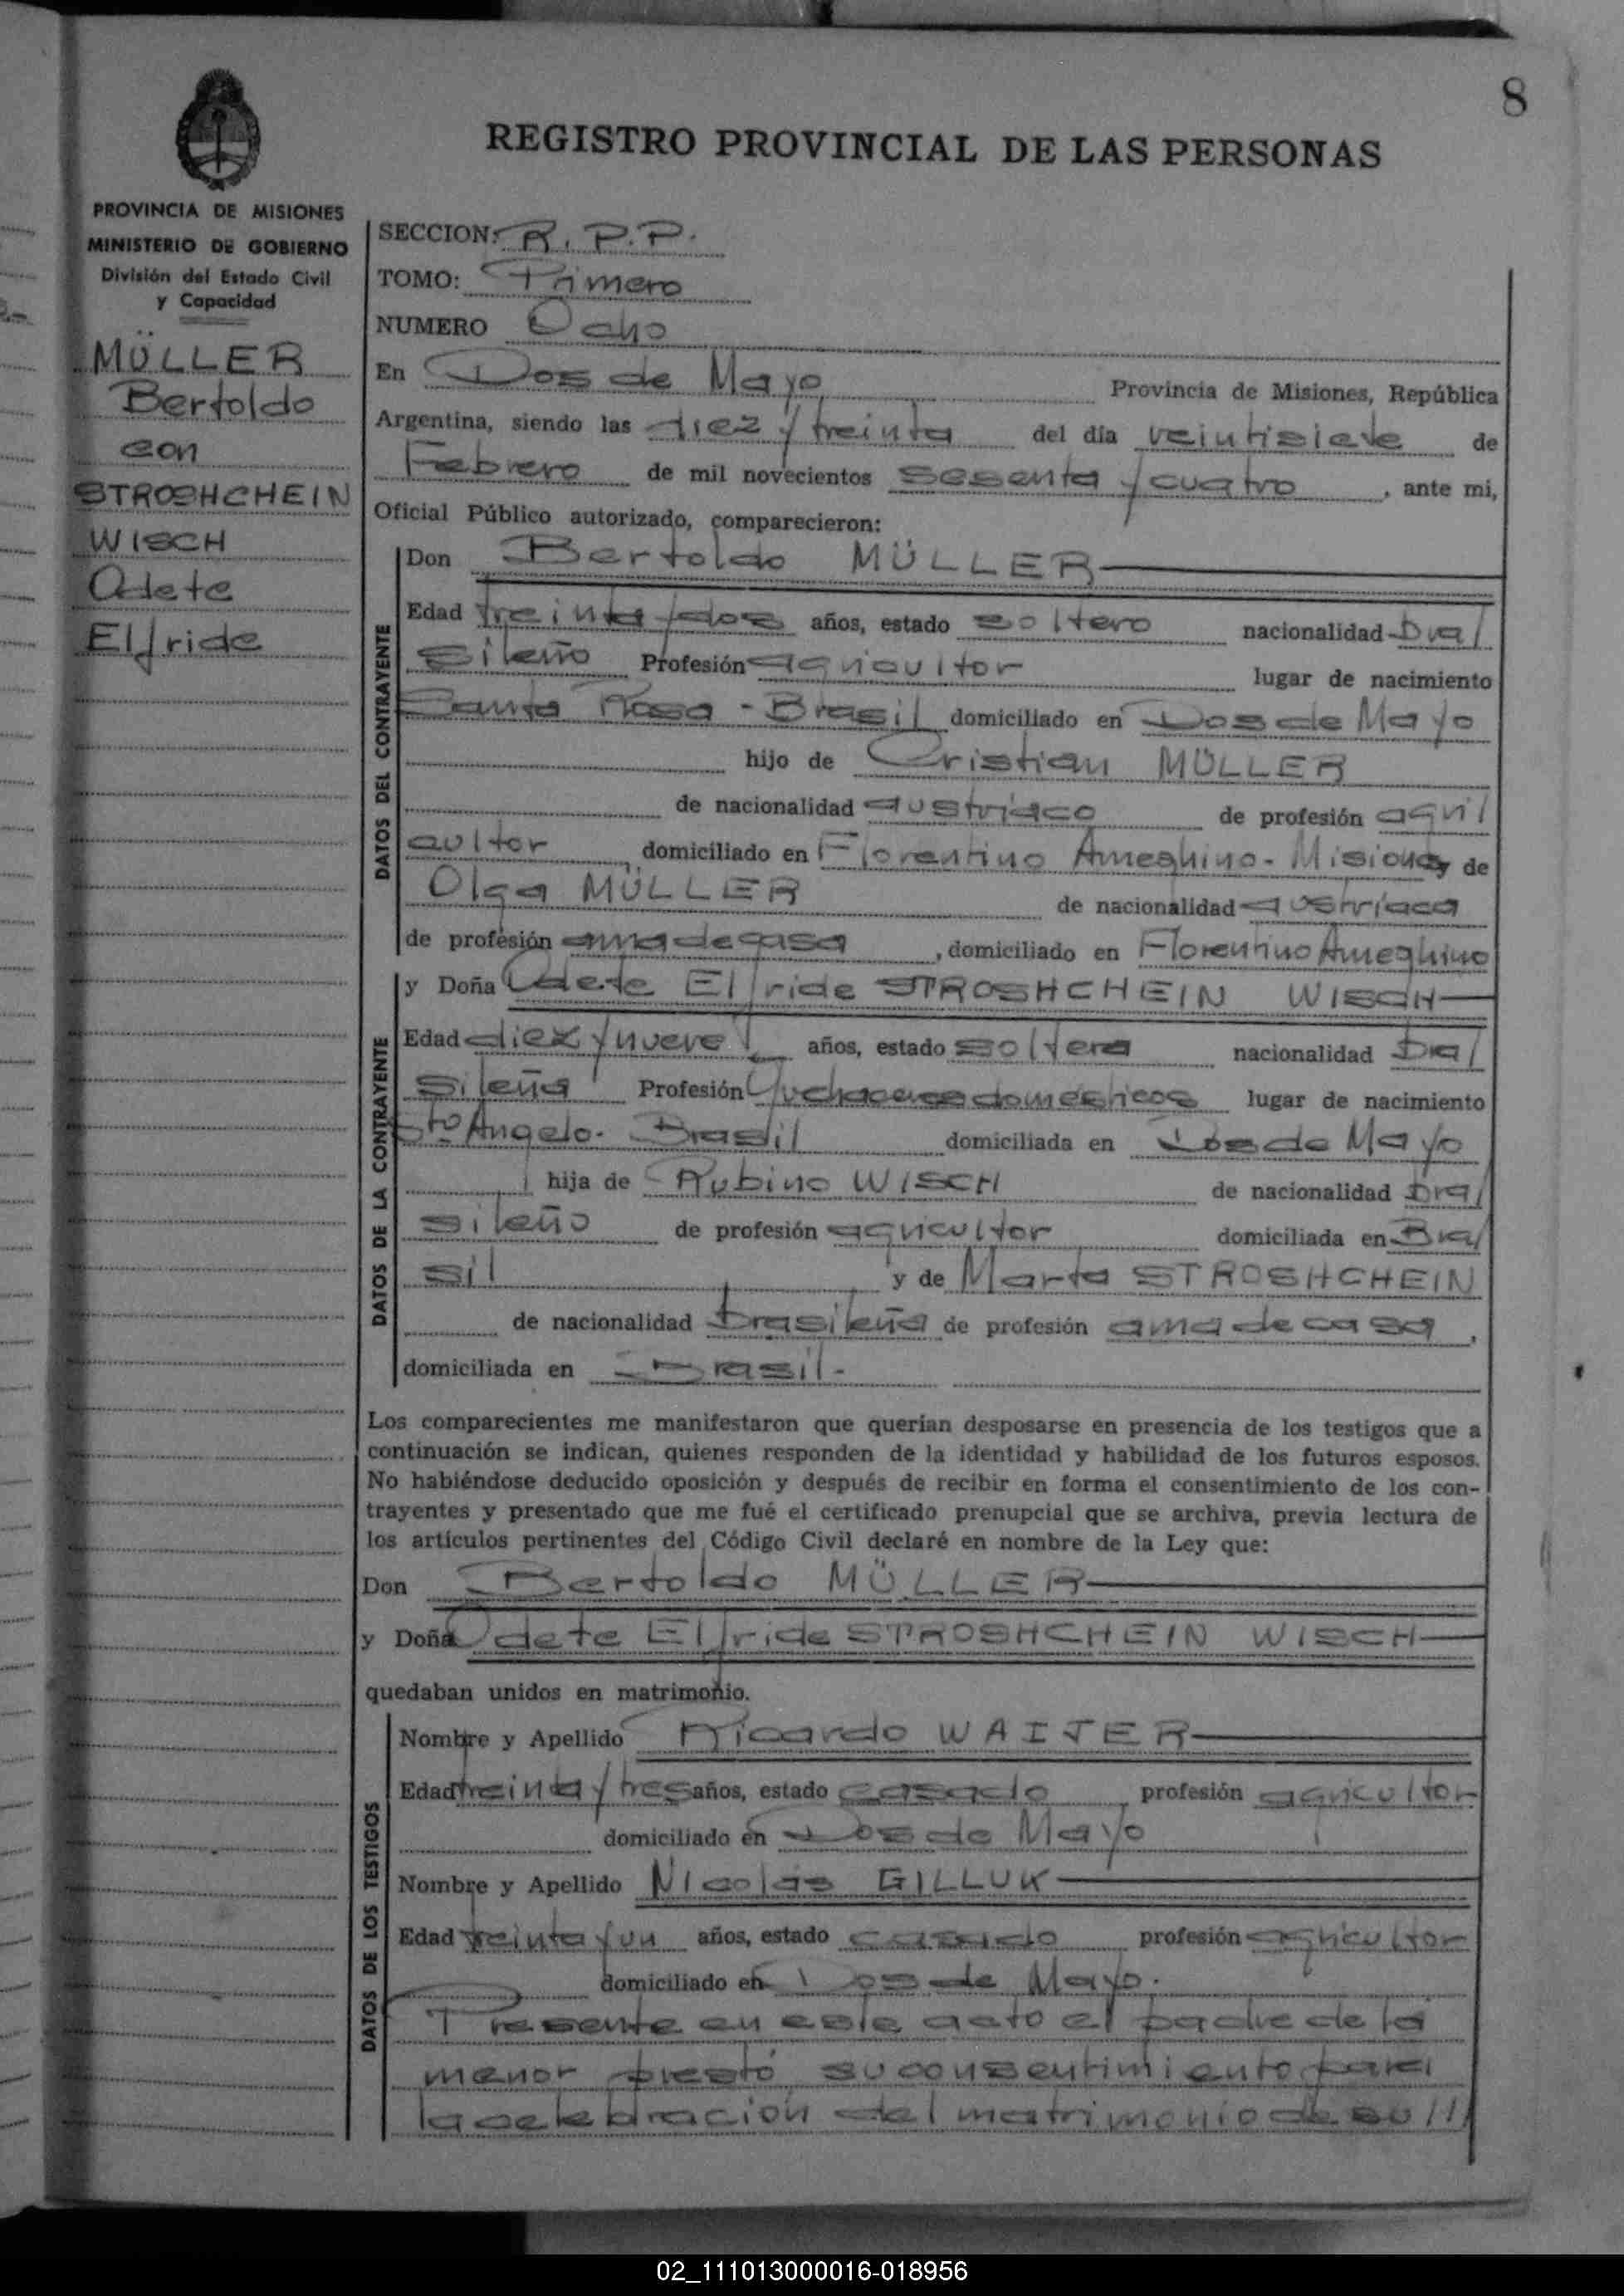 8
REGISTRO PROVINCIAL DE LAS PERSONAS
PROVINCIA DE MISIONES
MINISTERIO DE GOBIERNO
División del Estado Civil
y Capacidad
MÜLLER
Bertoldo
con
STROSHCHEIN
WISCH
Odete
Elfride
SECCION: R. P. P.
TOMO: Primero
NUMERO Ocho
En Dos de Mayo Provincia de Misiones, República
Argentina, siendo las diez y treinta del día veintisiete de
Febrero de mil novecientos sesenta y cuatro, ante mi,
Oficial Público autorizado, comparecieron:
DATOS DEL CONTRAYENTE
Don Bertoldo MÜLLER
Edad treinta y dos años, estado soltero nacionalidad bra/
sileño Profesión agricultor lugar de nacimiento
Santa Rosa - Brasil domiciliado en Dos de Mayo
hijo de Cristian MÜLLER
de nacionalidad austríaco de profesión agri/
cultor, domiciliado en Florentino Ameghino - Misiones y de
Olga MÜLLER de nacionalidad austríaca
de profesión ama de casa, domiciliado en Florentino Ameghino
DATOS DE LA CONTRAYENTE
y Doña Odete Elfride STROSHCHEIN WISCH
Edad diez y nueve años, estado soltera nacionalidad bra/
sileña Profesión quehaceres domésticos lugar de nacimiento
Sto Angelo - Brasil domiciliada en Dos de Mayo
hija de Rubino WISCH de nacionalidad bra/
sileño de profesión agricultor domiciliada en Bra/
sil y de Marta STROSHCHEIN
de nacionalidad brasileña de profesión ama de casa,
domiciliada en Brasil.-
Los comparecientes me manifestaron que querían desposarse en presencia de los testigos que a
continuación se indican, quienes responden de la identidad y habilidad de los futuros esposos.
No habiéndose deducido oposición y después de recibir en forma el consentimiento de los con-
trayentes y presentado que me fué el certificado prenupcial que se archiva, previa lectura de
los artículos pertinentes del Código Civil declaré en nombre de la Ley que:
Don Bertoldo MÜLLER
y Doña Odete Elfride STROSHCHEIN WISCH
quedaban unidos en matrimonio.
DATOS DE LOS TESTIGOS
Nombre y Apellido Ricardo WAITER
Edad treinta y tres años, estado casado profesión agricultor
domiciliado en Dos de Mayo
Nombre y Apellido Nicolás GILLUK
Edad treinta y un años, estado casado profesión agricultor
domiciliado en Dos de Mayo.
Presente en este acto el padre de la
menor prestó su consentimiento para
la celebración del matrimonio de su ///
02_111013000016-018956